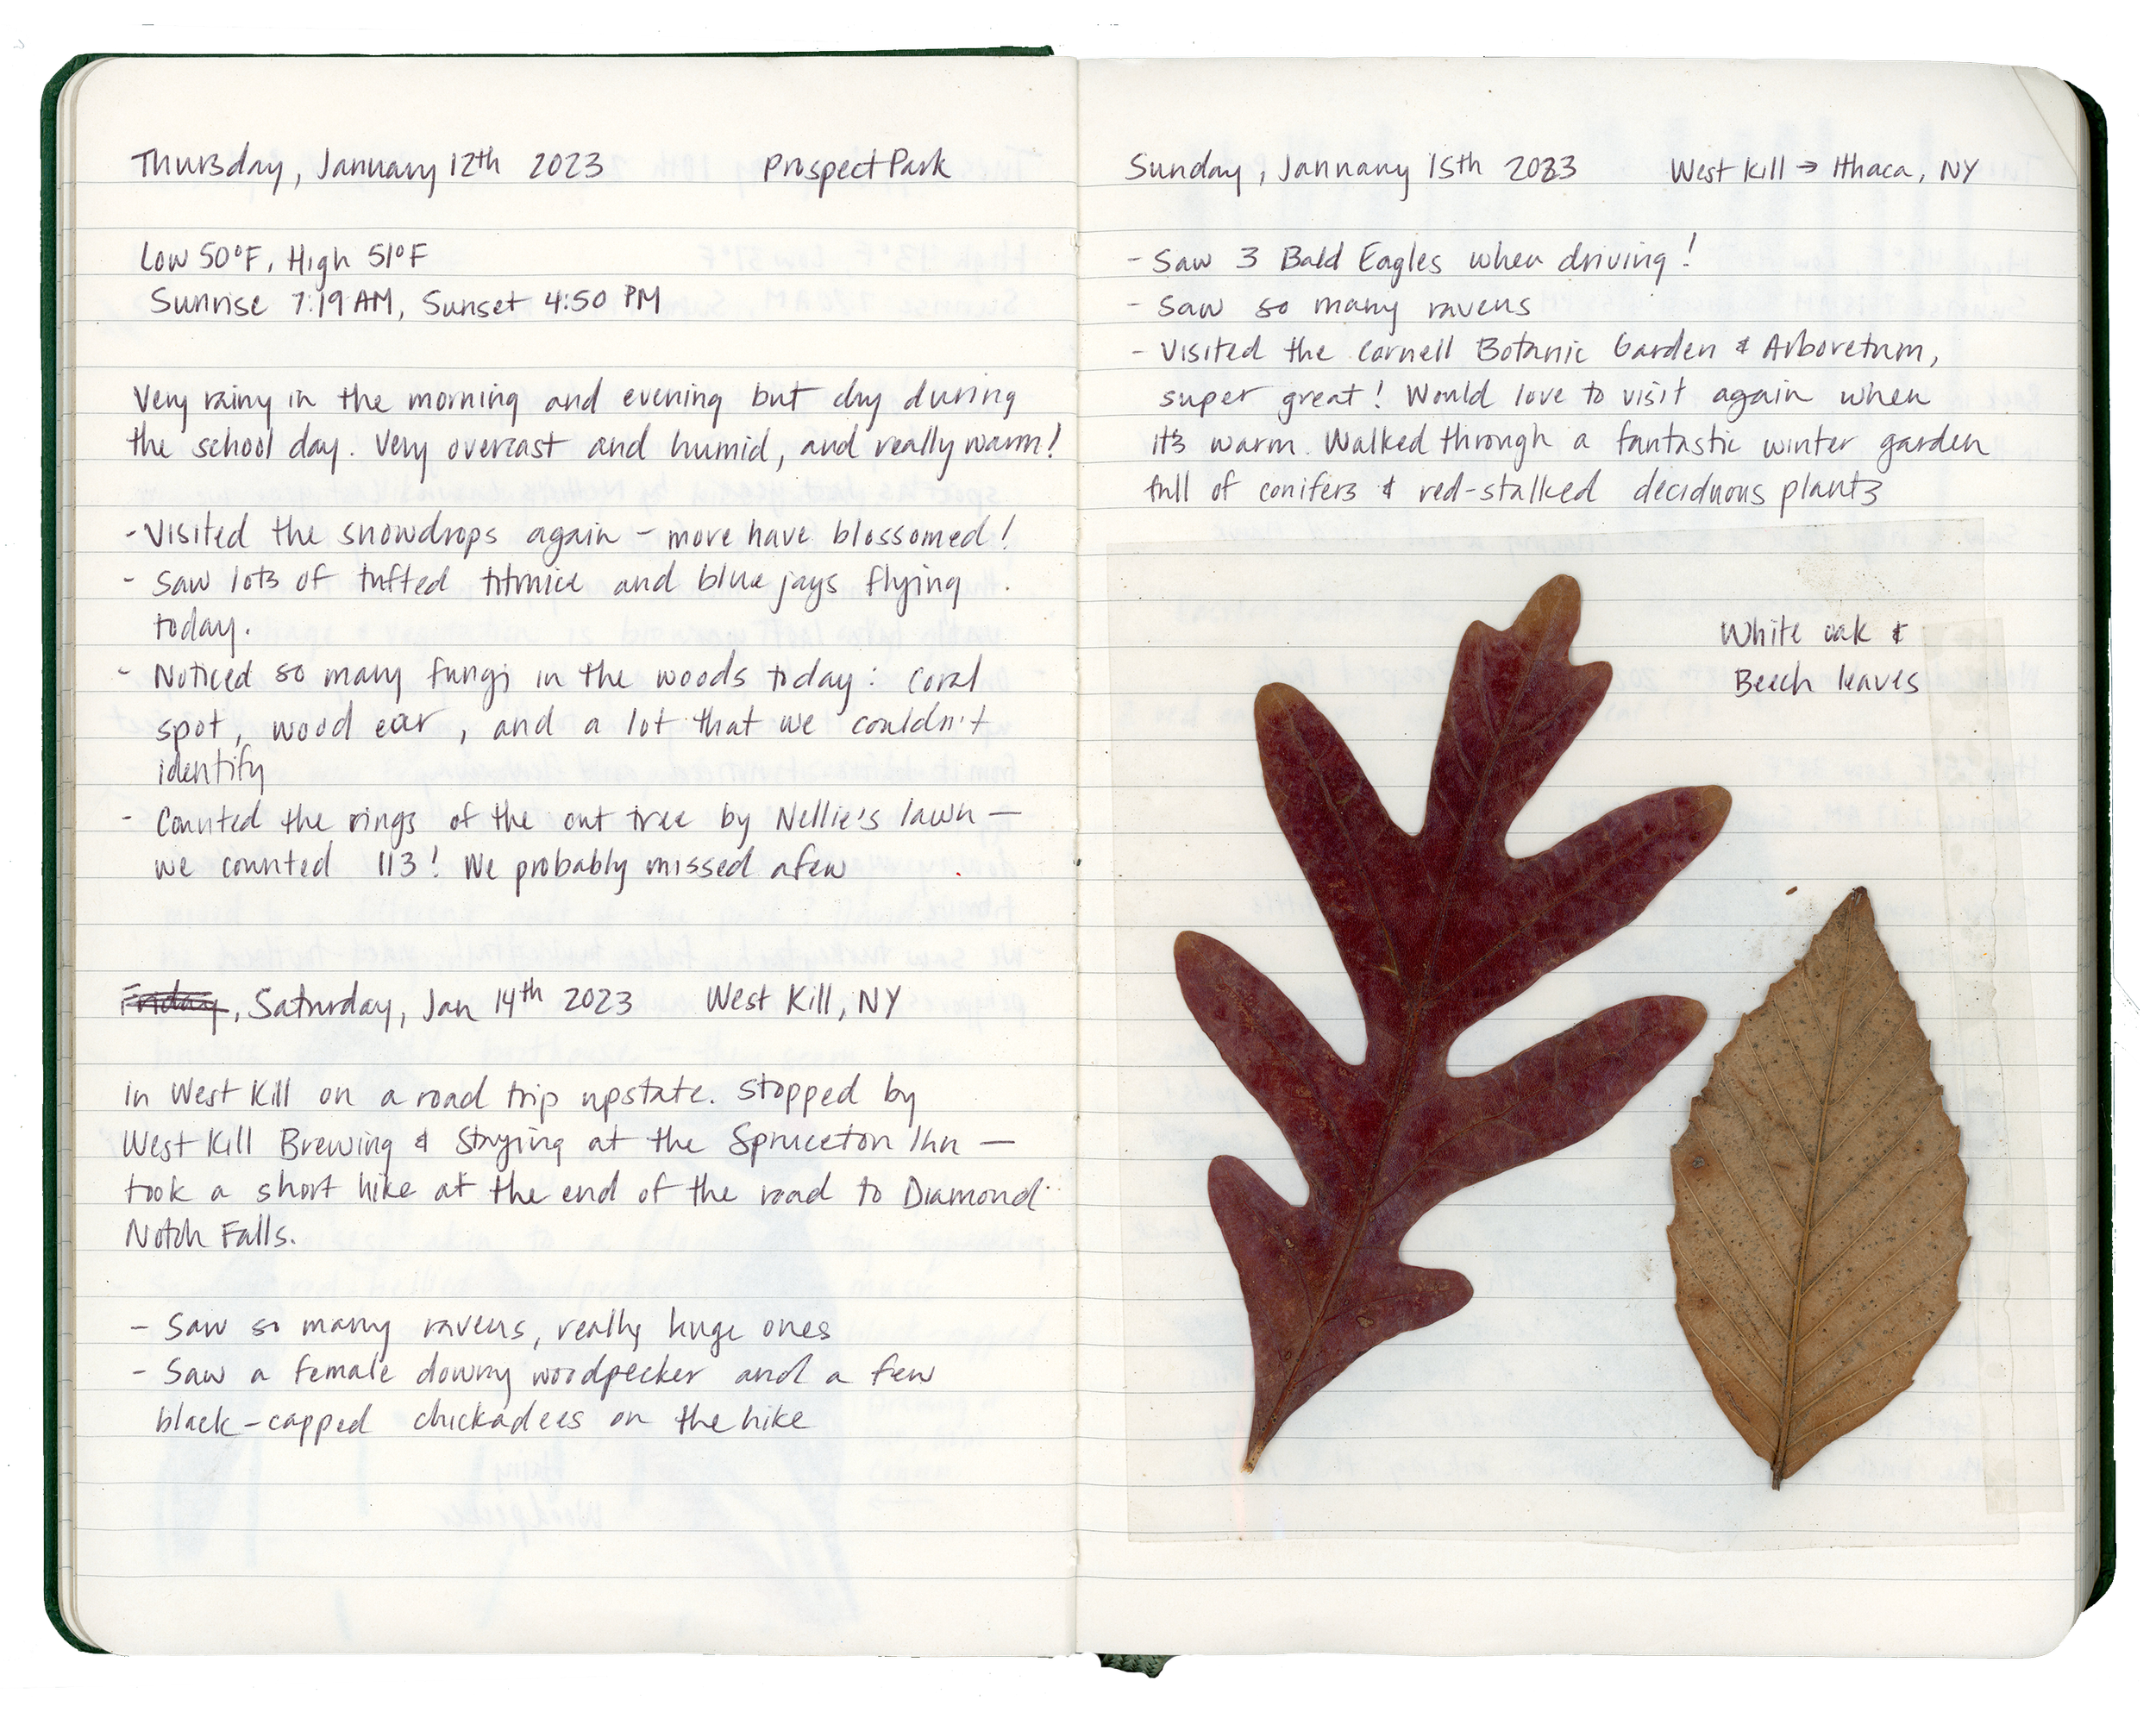 Thursday, January 12th 2023 Prospect Park
Low 50°F, High 51°F
Sunrise 7:19 AM, Sunset 4:50 PM
Very rainy in the morning and evening but dry during
the school day. Very overcast and humid, and really warm!
- Visited the snowdrops again - more have blossomed!
- Saw lots of tufted titmice and blue jays flying
today.
- Noticed so many fungi in the woods today: coral
spot, wood ear, and a lot that we couldn't
identify
- Counted the rings of the cut tree by Nellie's lawn —
we counted 113! We probably missed a few
Friday, Saturday, Jan 14th 2023 West Kill, NY
In West Kill on a road trip upstate. Stopped by
West Kill Brewing & Staying at the Spruceton Inn —
took a short hike at the end of the road to Diamond
Notch Falls.
- Saw so many ravens, really huge ones
- Saw a female downy woodpecker and a few
black-capped chickadees on the hike
Sunday, January 15th 2023 West Kill → Ithaca, NY
- Saw 3 Bald Eagles when driving!
- Saw so many ravens
- Visited the Cornell Botanic Garden & Arboretum,
super great! Would love to visit again when
it's warm. Walked through a fantastic winter garden
full of conifers & red-stalked deciduous plants
White oak &
Beech leaves